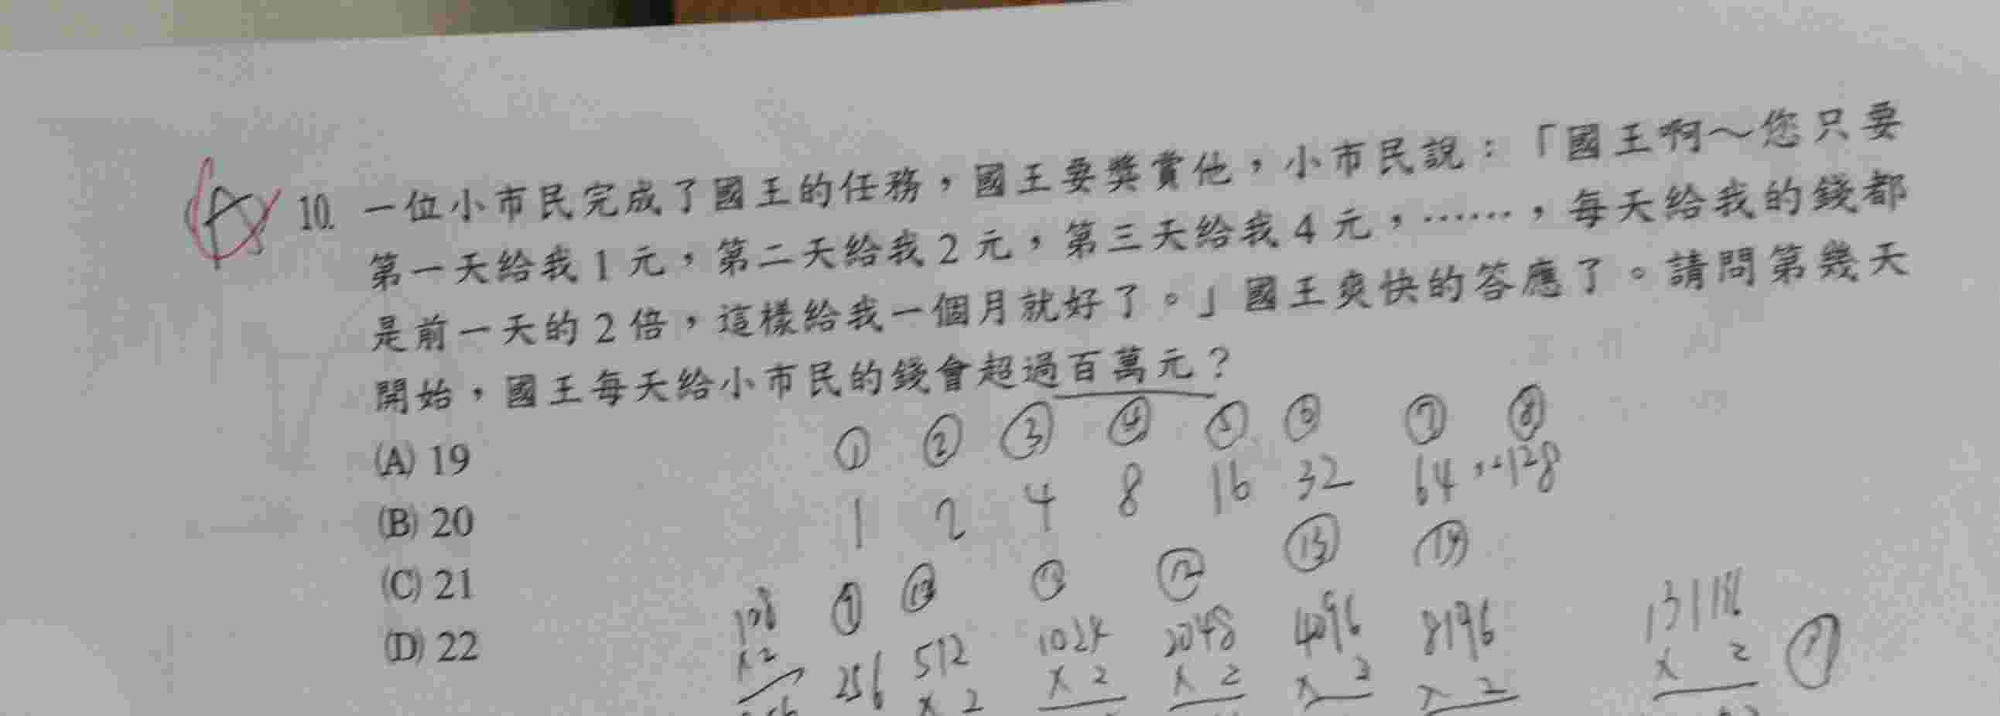 (A) 10. 一位小市民完成了國王的任務，國王要獎賞他，小市民說：「國王啊～您只要
第一天給我1元，第二天給我2元，第三天給我4元，……，每天給我的錢都
是前一天的2倍，這樣給我一個月就好了。」國王爽快的答應了。請問第幾天
開始，國王每天給小市民的錢會超過百萬元？
(A) 19
(B) 20
(C) 21
(D) 22
① ② ③ ④ ⑤ ⑥ ⑦ ⑧
1 2 4 8 16 32 64 128
⑨ ⑫ ⑬ ⑭
256 512 1024 2048 4096 8196
x 2 x 2 x 2 x 2 x 2 x 2 x 2